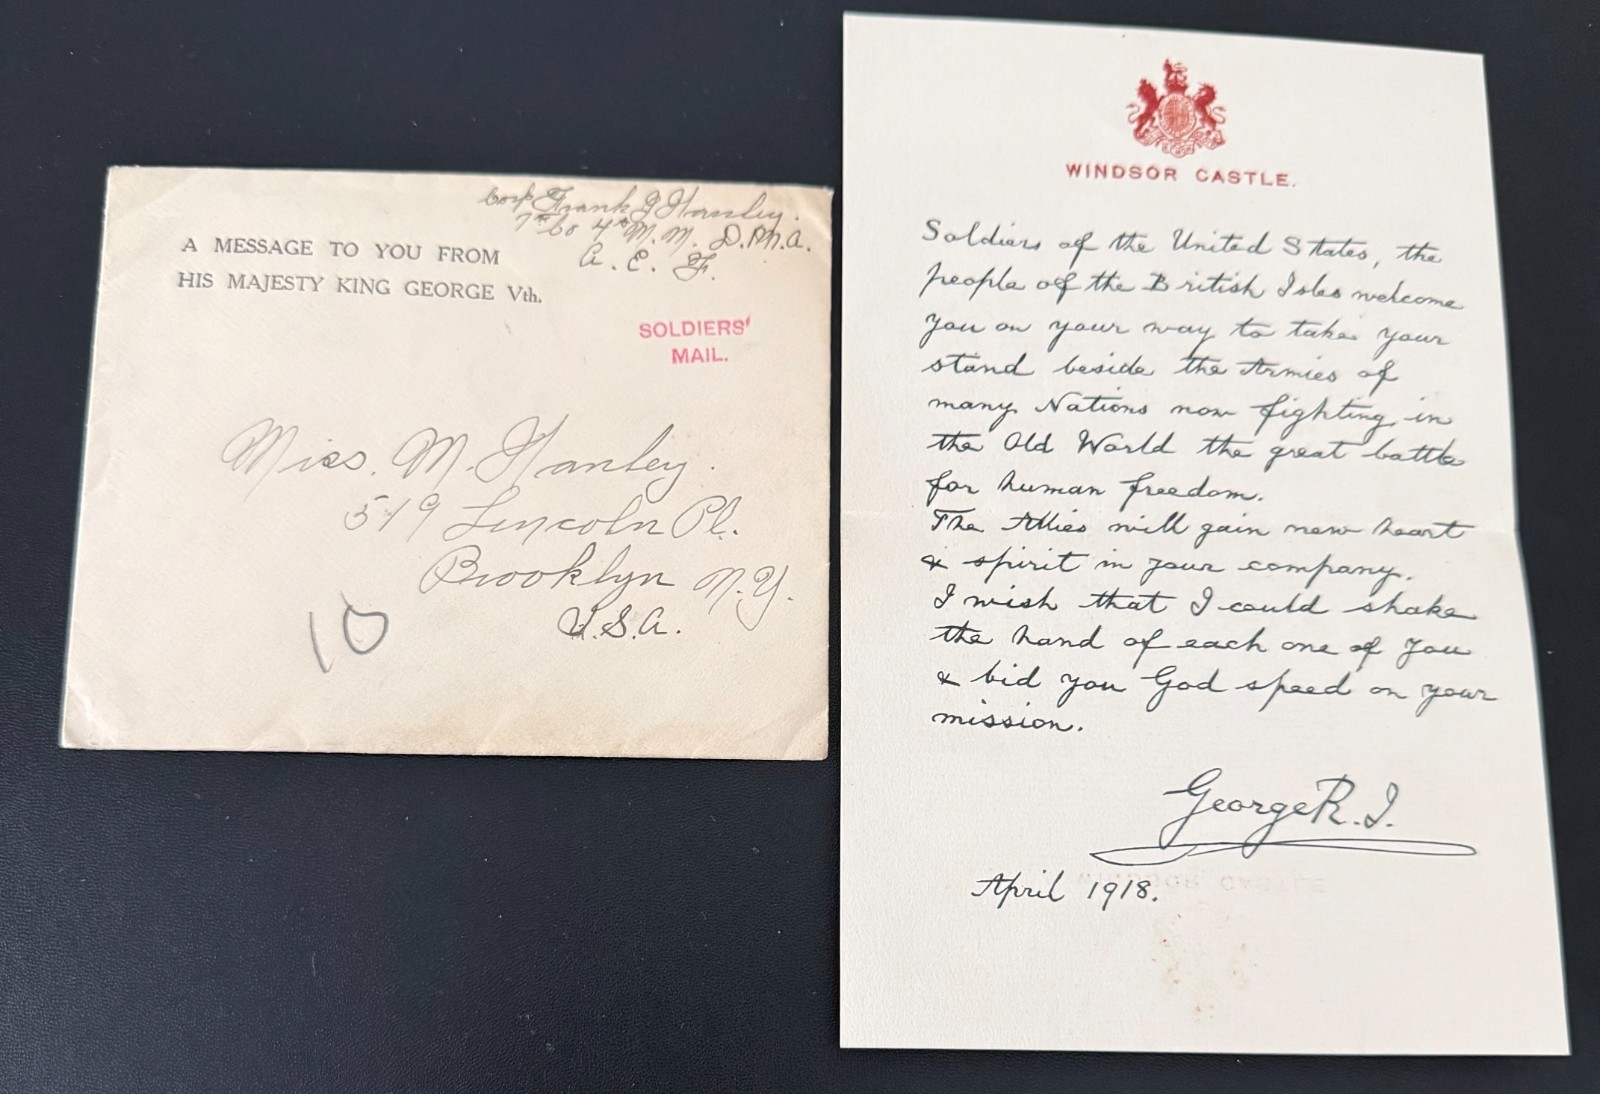 Corp Frank J Hanley.
7th Co 4th M. M. D.M.A.
A. E. F.
A MESSAGE TO YOU FROM
HIS MAJESTY KING GEORGE Vth.
SOLDIERS'
MAIL.
Miss. M. Hanley.
519 Lincoln Pl.
Brooklyn N.Y.
U.S.A.
10
WINDSOR CASTLE.
Soldiers of the United States, the
people of the British Isles welcome
you on your way to take your
stand beside the Armies of
many Nations now fighting in
the Old World the great battle
for human freedom.
The Allies will gain new heart
& spirit in your company.
I wish that I could shake
the hand of each one of you
& bid you God speed on your
mission.
George R.I.
April 1918.
WINDSOR CASTLE